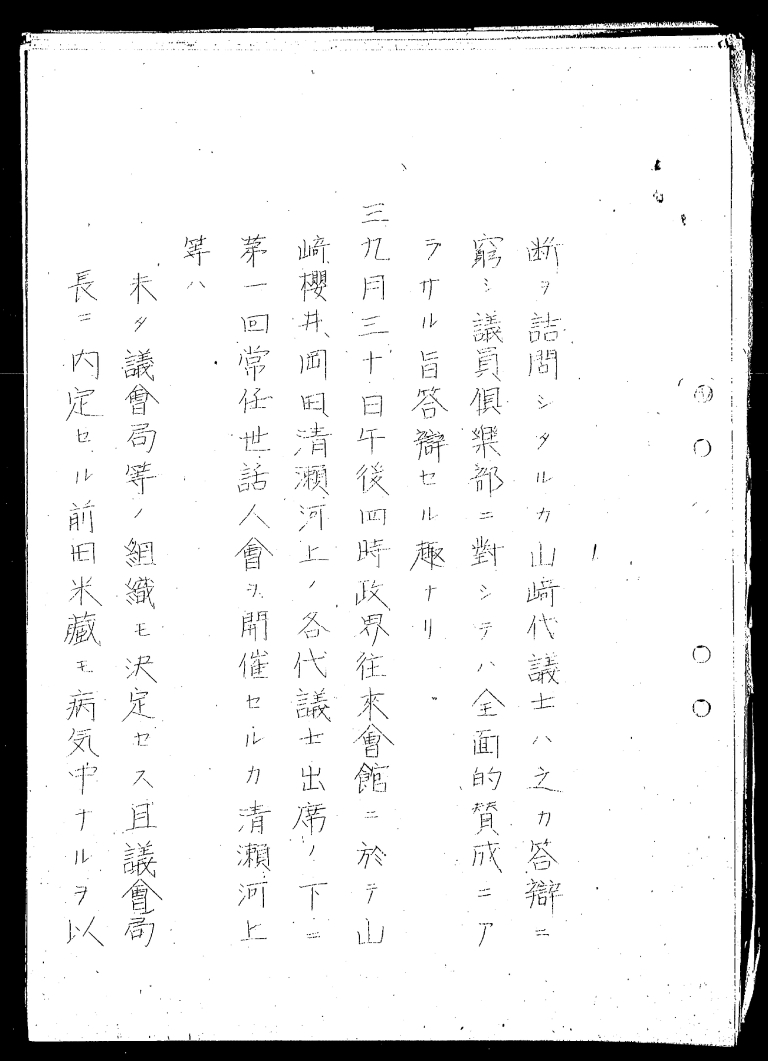 断ヲ詰問シタルカ山﨑代議士ハ之カ答辯ニ
窮シ議員倶楽部ニ對シテハ全面的賛成ニア
ラサル旨答辯セル趣ナリ
三九月三十日午後四時政界往來會館ニ於テ山
﨑櫻井岡田清瀬河上ノ各代議士出席ノ下ニ
第一回常任世話人會ヲ開催セルカ清瀬河上
等ハ
未タ議會局等ノ組織モ決定セス且議會局
長ニ内定セル前田米蔵モ病気中ナルヲ以